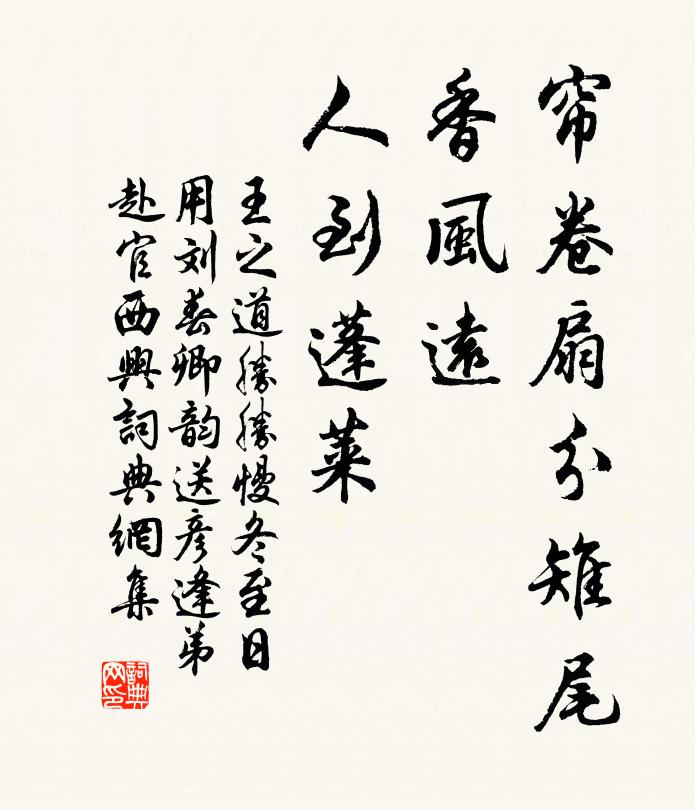 帘卷扇分雉尾
香風遠
人到蓬萊
王之道勝勝慢冬至日
用刘春卿韵送彦逢弟
赴官西興詞典網集
詞典網印